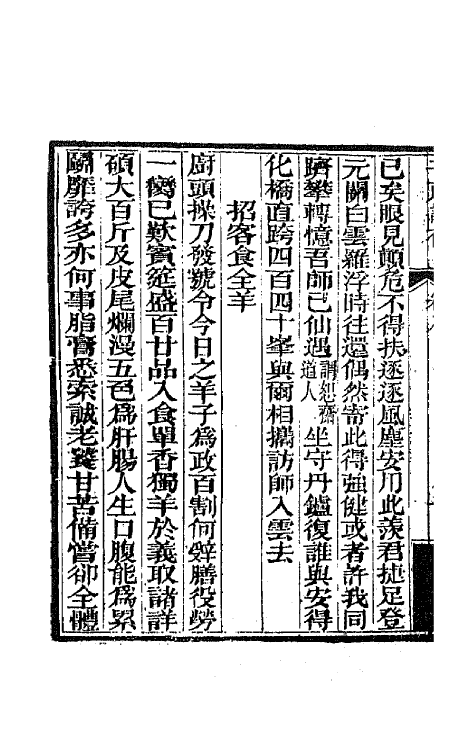 已矣眼見顛危不得扶逐逐風塵安用此羨君捷足登
元關白雲羅浮時往還偶然寄此得強健或者許我同
躋攀轉憶吾師已仙遇謂恕齋道人坐守丹鑪復誰與安得
化橋直跨四百四十峯與爾相攜訪師入雲去
招客食全羊
廚頭操刀發號令今日之羊子爲政百割何辭膳役勞
一臠已歎賓筵盛百甘品入食單香獨羊於義取諸詳
碩大百斤及皮尾爛漫五色爲肝腸人生口腹能爲累
鬬靡誇多亦何事脂膏悉索誠老饕甘苦備嘗卻全體